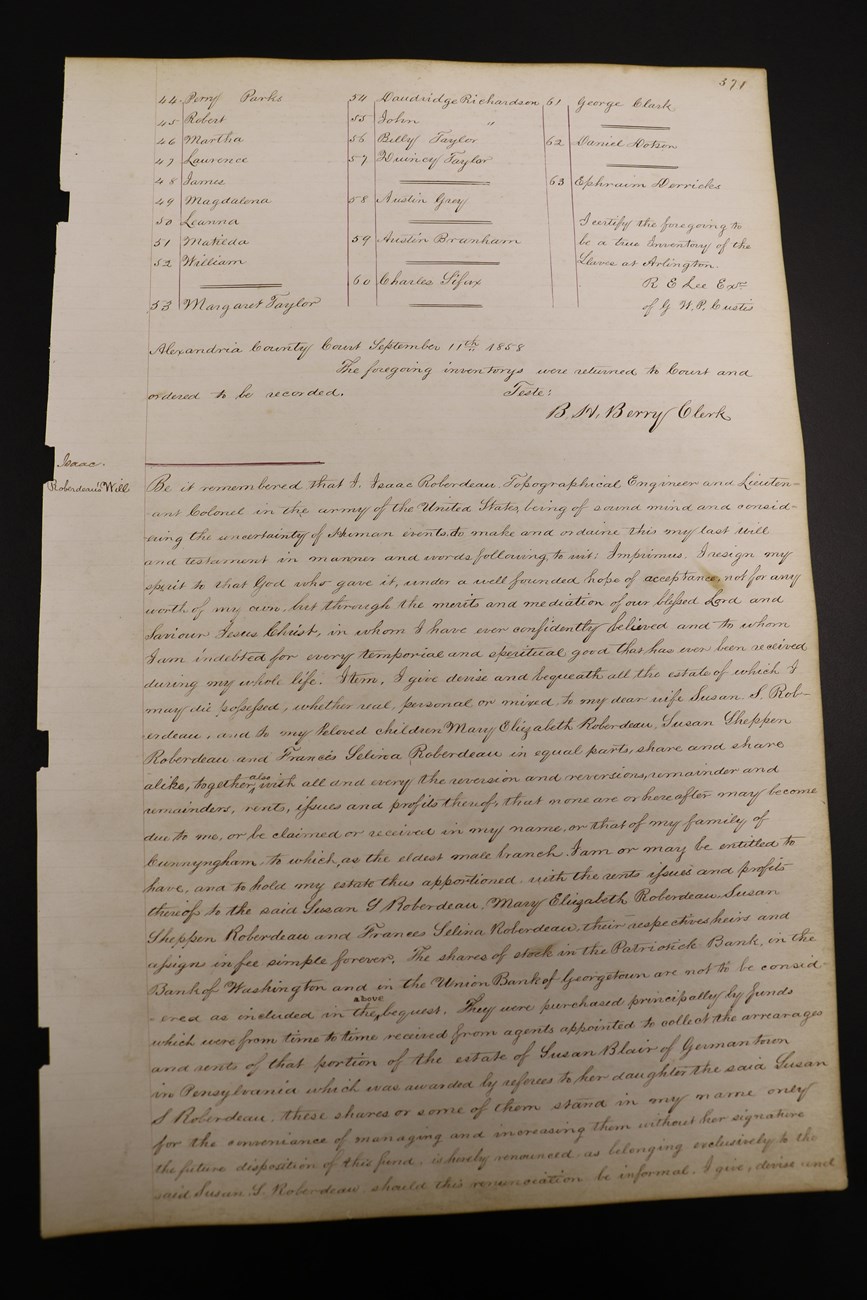 371
44 Perry Parks
45 Robert
46 Martha
47 Laurence
48 James
49 Magdalena
50 Leanna
51 Matilda
52 William
53 Margaret Taylor
54 Daudridge Richardson
55 John "
56 Billy Taylor
57 Quincy Taylor
58 Austin Grey
59 Austin Branham
60 Charles Sifax
61 George Clark
62 Daniel Dotson
63 Ephraim Derricks
I certify the foregoing to
be a true Inventory of the
Slaves at Arlington.
R E Lee Exr
of G. W. P. Custis
Alexandria County Court September 11th 1858
The foregoing inventorys were returned to Court and
ordered to be recorded. Teste:
B. H. Berry Clerk
Isaac
Roberdeau's Will
Be it remembered that I. Isaac Roberdeau Topographical Engineer and Lieuten-
ant Colonel in the army of the United States, being of sound mind and consid-
ering the uncertainty of Human events, do make and ordaine this my last will
and testament in manner and words following, to wit: Imprimus. I resign my
spirit to that God who gave it, under a well founded hope of acceptance, not for any
worth of my own, but through the merits and mediation of our blessed Lord and
Saviour Jesus Christ, in whom I have ever confidently believed and to whom
I am indebted for every temporial and spiritual good that has ever been received
during my whole life. Item, I give devise and bequeath all the estate of which I
may die possessed, whether real, personal or mixed to my dear wife Susan. S. Rob-
erdeau, and to my beloved children Mary Elizabeth Roberdeau, Susan Sheppen
Roberdeau and Francis Selina Roberdeau in equal parts, share and share
alike, together also with all and every the reversion and reversions, remainder and
remainders, rents, issues and profits thereof, that none are or hereafter may become
due to me, or be claimed or received in my name, or that of my family of
Cunnyngham, to which, as the eldest male branch I am or may be entitled to
have, and to hold my estate thus apportioned with the rents issues and profits
thereof to the said Susan S Roberdeau, Mary Elizabeth Roberdeau, Susan
Sheppen Roberdeau and Frances Selina Roberdeau, their respective heirs and
assigns in fee simple forever. The shares of stock in the Patriotick Bank, in the
Bank of Washington and in the Union Bank of Georgetown are not to be consid-
-ered as included in the above bequest. They were purchased principally by funds
which were from time to time received from agents appointed to collect the arrearages
and rents of that portion of the estate of Susan Blair of Germantown
in Pensylvania which was awarded by referees to her daughter the said Susan
S Roberdeau, these shares or some of them stand in my name only
for the conveniance of managing and increasing them without her signature
the future disposition of this fund, is hereby renounced as belonging exclusively to the
said Susan S. Roberdeau, should this renunciation be informal. I give, devise and